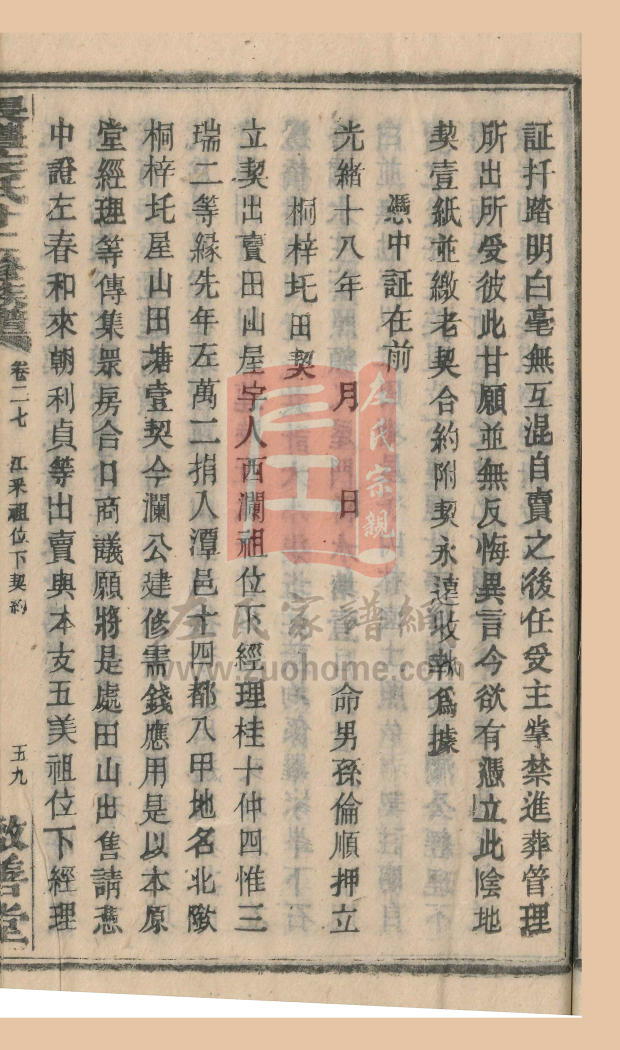 証扦踏明白毫無互混自賣之後任受主掌禁進葬管理
所出所受彼此甘願並無反悔異言今欲有憑立此陰地
契壹紙並繳老契合約附契永遠收執爲據
憑中証在前
光緒十八年 月 日 命男孫倫順押立
桐梓圫田契
立契出賣田山屋宇人西瀾祖位下經理桂十仲四惟三
瑞二等緣先年左萬二捐入潭邑十四都八甲地名北歐
桐梓圫屋山田塘壹契今瀾公建修需錢應用是以本原
堂經理等傳集眾房合口商議願將是處田山出售請憑
中證左春和來朝利貞等出賣與本支五美祖位下經理
左氏 族譜
卷二七 江釆祖位下契約
五九
敦善堂
左氏宗親
左氏家譜網
www.zuohome.com